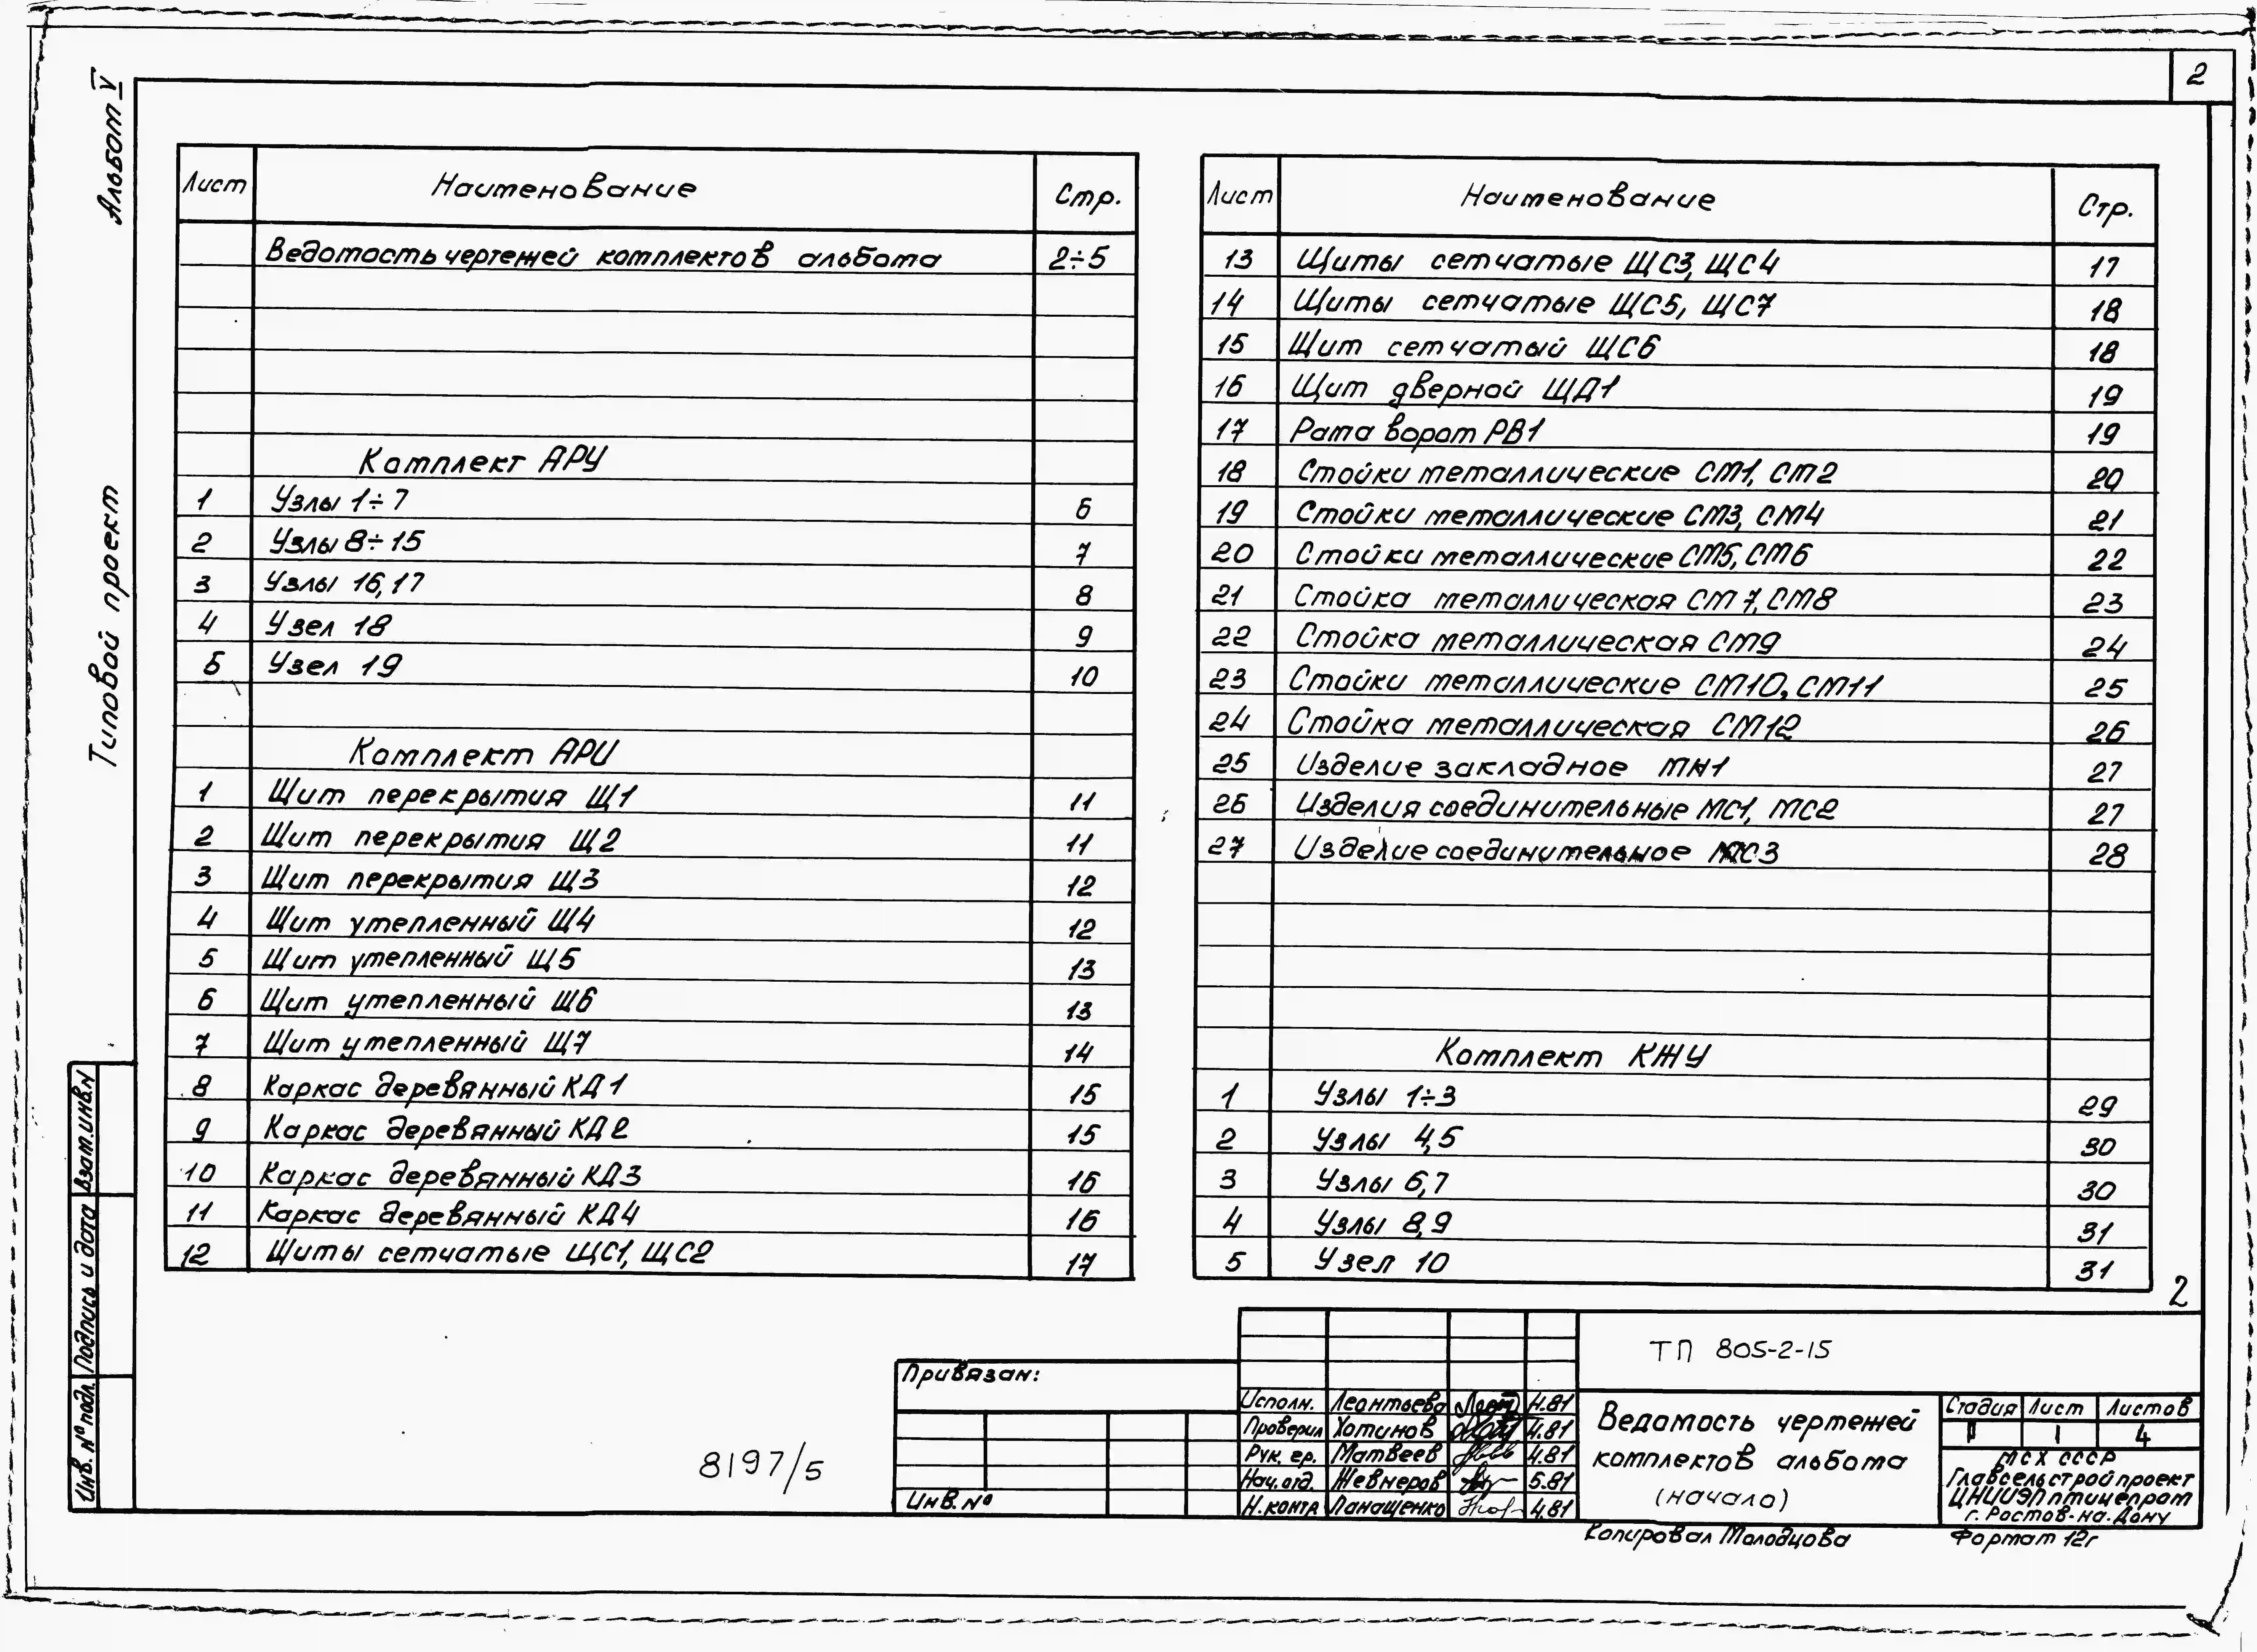 2
Альбом V
Типовой проект
Лист Наименование Стр.
Ведомость чертежей комплектов альбома 2÷5
Комплект АРУ
1 Узлы 1÷7 6
2 Узлы 8÷15 7
3 Узлы 16,17 8
4 Узел 18 9
5 Узел 19 10
Комплект АРИ
1 Щит перекрытия Щ1 11
2 Щит перекрытия Щ2 11
3 Щит перекрытия Щ3 12
4 Щит утепленный Щ4 12
5 Щит утепленный Щ5 13
6 Щит утепленный Щ6 13
7 Щит утепленный Щ7 14
8 Каркас деревянный КД1 15
9 Каркас деревянный КД2 15
10 Каркас деревянный КД3 16
11 Каркас деревянный КД4 16
12 Щиты сетчатые ЩС1, ЩС2 17
Лист Наименование Стр.
13 Щиты сетчатые ЩС3, ЩС4 17
14 Щиты сетчатые ЩС5, ЩС7 18
15 Щит сетчатый ЩС6 18
16 Щит дверной ЩД1 19
17 Рама ворот РВ1 19
18 Стойки металлические СМ1, СМ2 20
19 Стойки металлические СМ3, СМ4 21
20 Стойки металлические СМ5, СМ6 22
21 Стойка металлическая СМ7, СМ8 23
22 Стойка металлическая СМ9 24
23 Стойки металлические СМ10, СМ11 25
24 Стойка металлическая СМ12 26
25 Изделие закладное МН1 27
26 Изделия соединительные МС1, МС2 27
27 Изделие соединительное МС3 28
Комплект КЖУ
1 Узлы 1÷3 29
2 Узлы 4,5 30
3 Узлы 6,7 30
4 Узлы 8,9 31
5 Узел 10 31
2
Взам.инв.N
Подпись и дата
Инв. № подл.
8197/5
Привязан:
Инв.№
Исполн. Леонтьева 4.81
Проверил Хотинов 4.81
Рук. гр. Матвеев 4.81
Нач.отд. Жевнеров 5.81
Н.контр Панащенко 4.81
ТП 805-2-15
Ведомость чертежей
комплектов альбома
(начало)
Стадия Лист Листов
1 4
МСХ СССР
Главсельстройпроект
ЦНИИЭПптицепром
г. Ростов-на-Дону
Копировал Молодцова Формат 12г